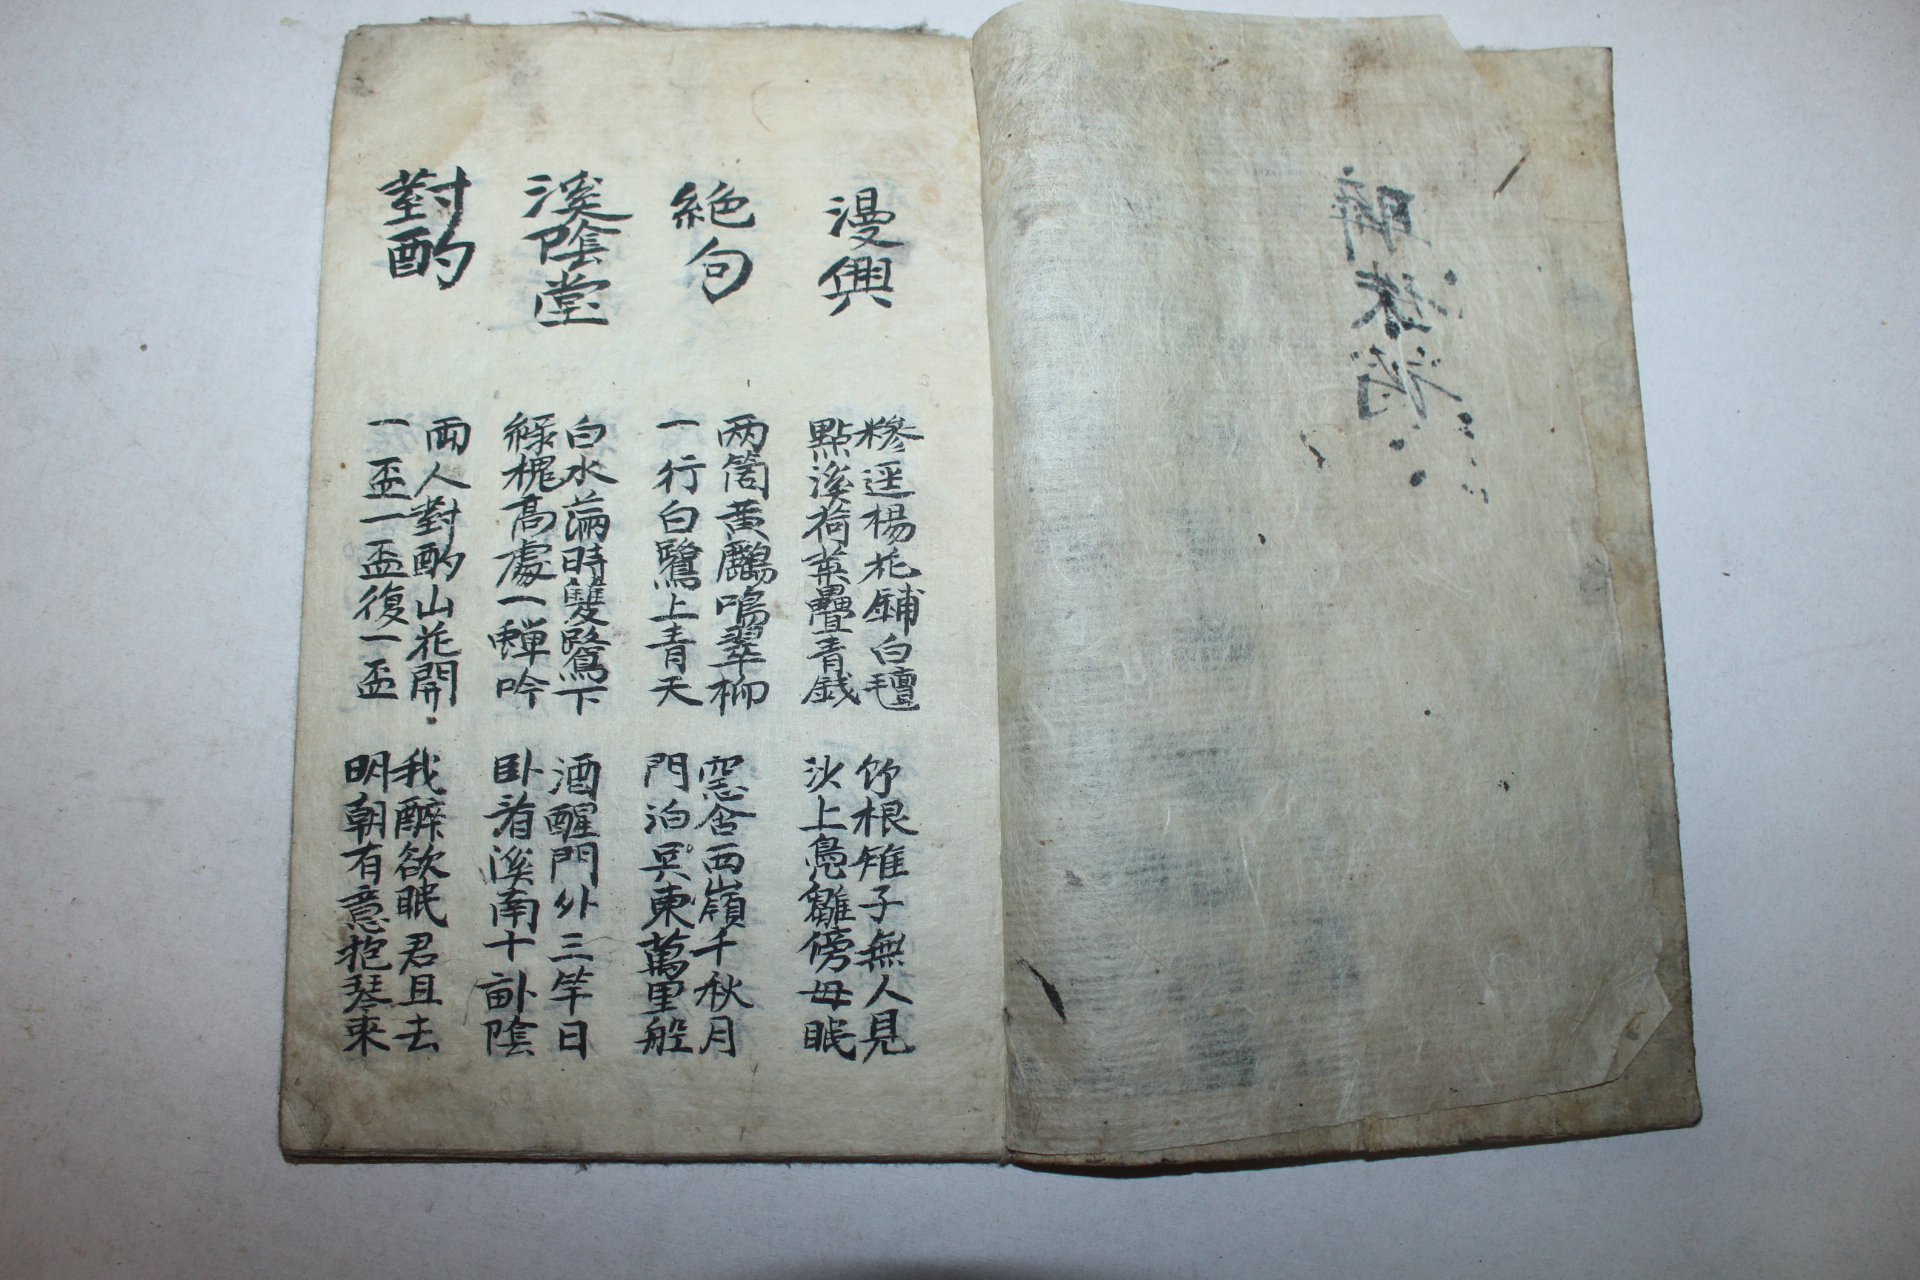 漫興
糝逕楊花鋪白氈
點溪荷葉疊青錢
竹根雉子無人見
沙上鳧雛傍母眠
絶句
两箇黄鸝鳴翠柳
一行白鷺上青天
窓含西嶺千秋月
門泊吳東萬里船
溪陰堂
白水滿時雙鷺下
綠槐高處一蟬吟
酒醒門外三竿日
卧看溪南十畝陰
對酌
兩人對酌山花開
一盃一盃復一盃
我醉欲眠君且去
明朝有意抱琴來